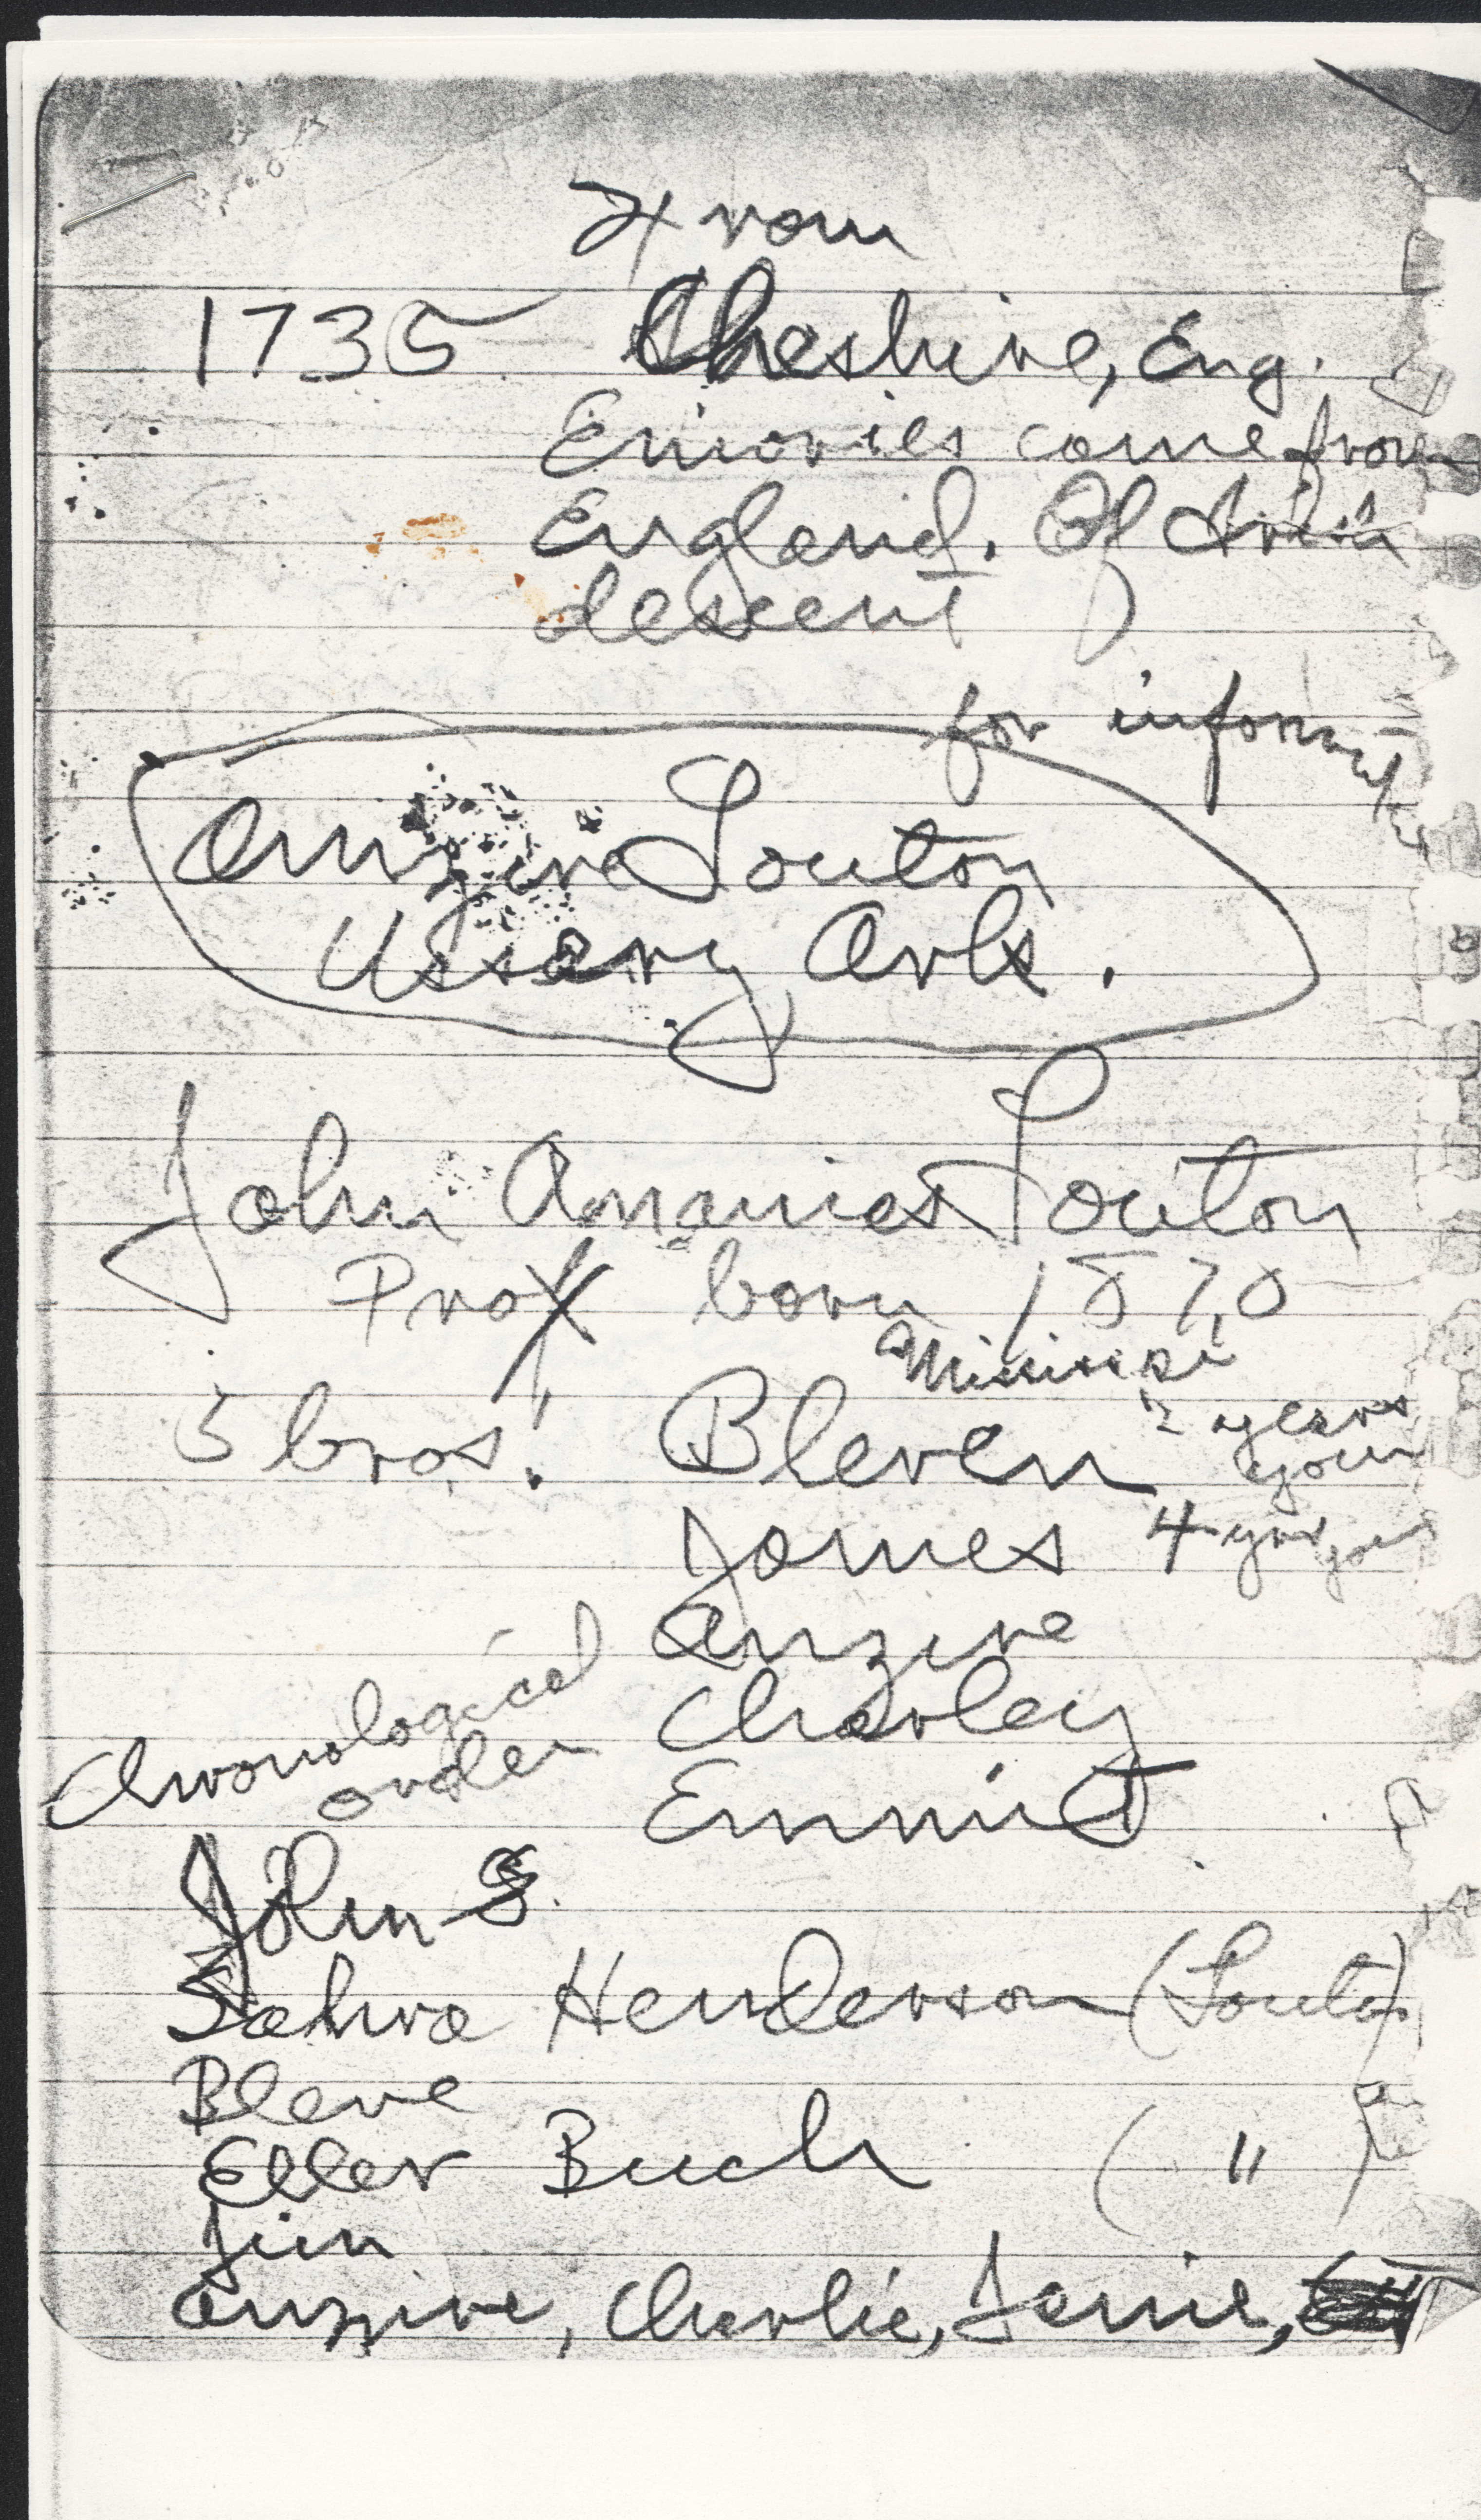 From
1735 Cheshire, Eng.
Emories came from
England. Of Irish
descent
for informat
Anzine Louton
Ussery, Ark.
John Ananias Louton
Prof born 1870
Mississpi
5 bros! Bleven 2 years
youn
James 4 yrs
Anzine
Charley
Chronological
order
Emmit
John S.
Henderson (Louton)
Bleve
Eller Buck ( " )
Jim
Anzine, Charlie, Janie,